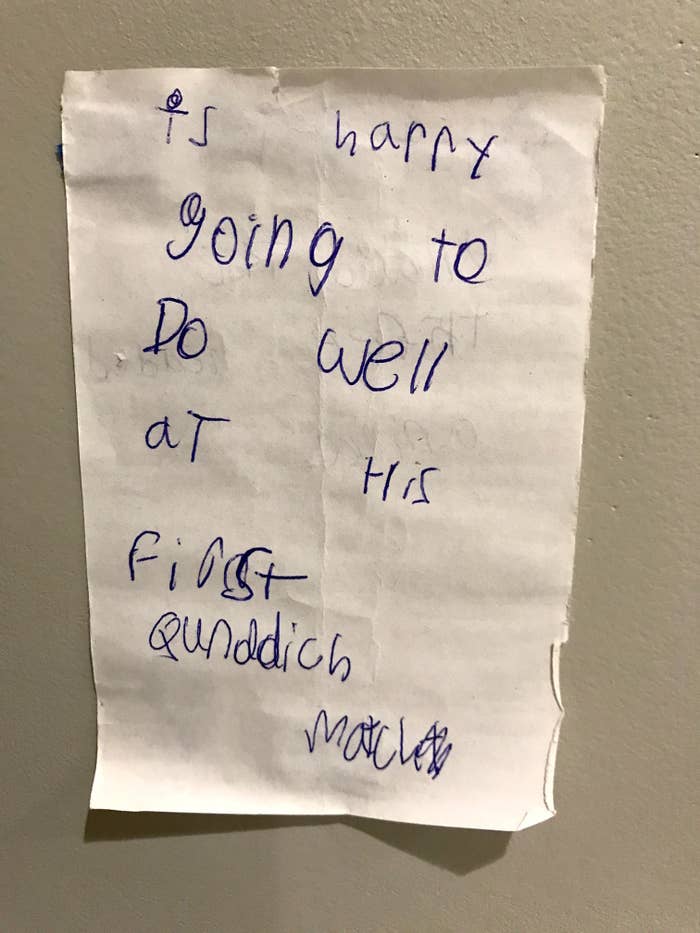 is happy
going to
Do well
aT His
First
Qunddich
Match